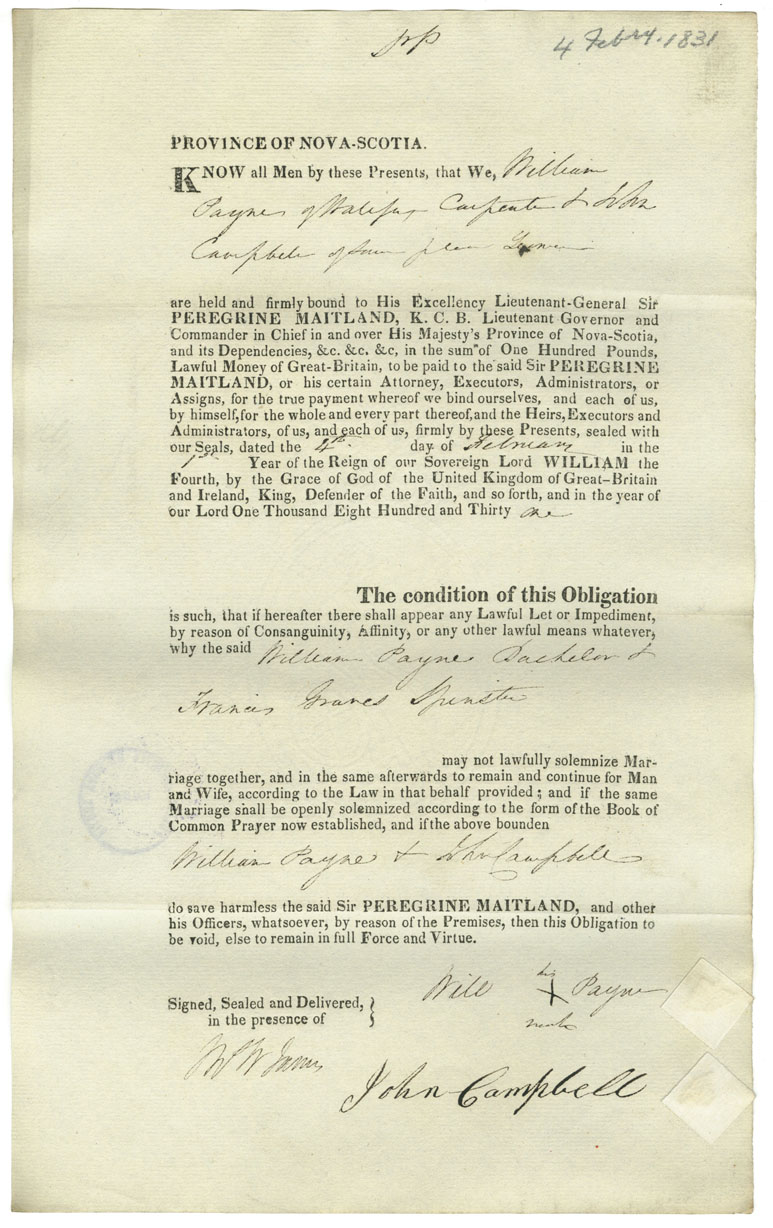 4 Feb'ry. 1831
PROVINCE OF NOVA-SCOTIA.
KNOW all Men by these Presents, that We, William
Payne of Halifax Carpenter & John
Campbell of same place
are held and firmly bound to His Excellency Lieutenant-General Sir
PEREGRINE MAITLAND, K. C. B. Lieutenant Governor and
Commander in Chief in and over His Majesty's Province of Nova-Scotia,
and its Dependencies, &c. &c. &c, in the sum of One Hundred Pounds,
Lawful Money of Great-Britain, to be paid to the said Sir PEREGRINE
MAITLAND, or his certain Attorney, Executors, Administrators, or
Assigns, for the true payment whereof we bind ourselves, and each of us,
by himself, for the whole and every part thereof, and the Heirs, Executors and
Administrators, of us, and each of us, firmly by these Presents, sealed with
our Seals, dated the 4th day of February in the
1st Year of the Reign of our Sovereign Lord WILLIAM the
Fourth, by the Grace of God of the United Kingdom of Great-Britain
and Ireland, King, Defender of the Faith, and so forth, and in the year of
our Lord One Thousand Eight Hundred and Thirty one
The condition of this Obligation
is such, that if hereafter there shall appear any Lawful Let or Impediment,
by reason of Consanguinity, Affinity, or any other lawful means whatever,
why the said William Payne Bachelor &
Francis Graves Spinster
may not lawfully solemnize Mar-
riage together, and in the same afterwards to remain and continue for Man
and Wife, according to the Law in that behalf provided; and if the same
Marriage shall be openly solemnized according to the form of the Book of
Common Prayer now established, and if the above bounden
William Payne & John Campbell
do save harmless the said Sir PEREGRINE MAITLAND, and other
his Officers, whatsoever, by reason of the Premises, then this Obligation to
be void, else to remain in full Force and Virtue.
Will his X Payne
mark
Signed, Sealed and Delivered, }
in the presence of
John Campbell